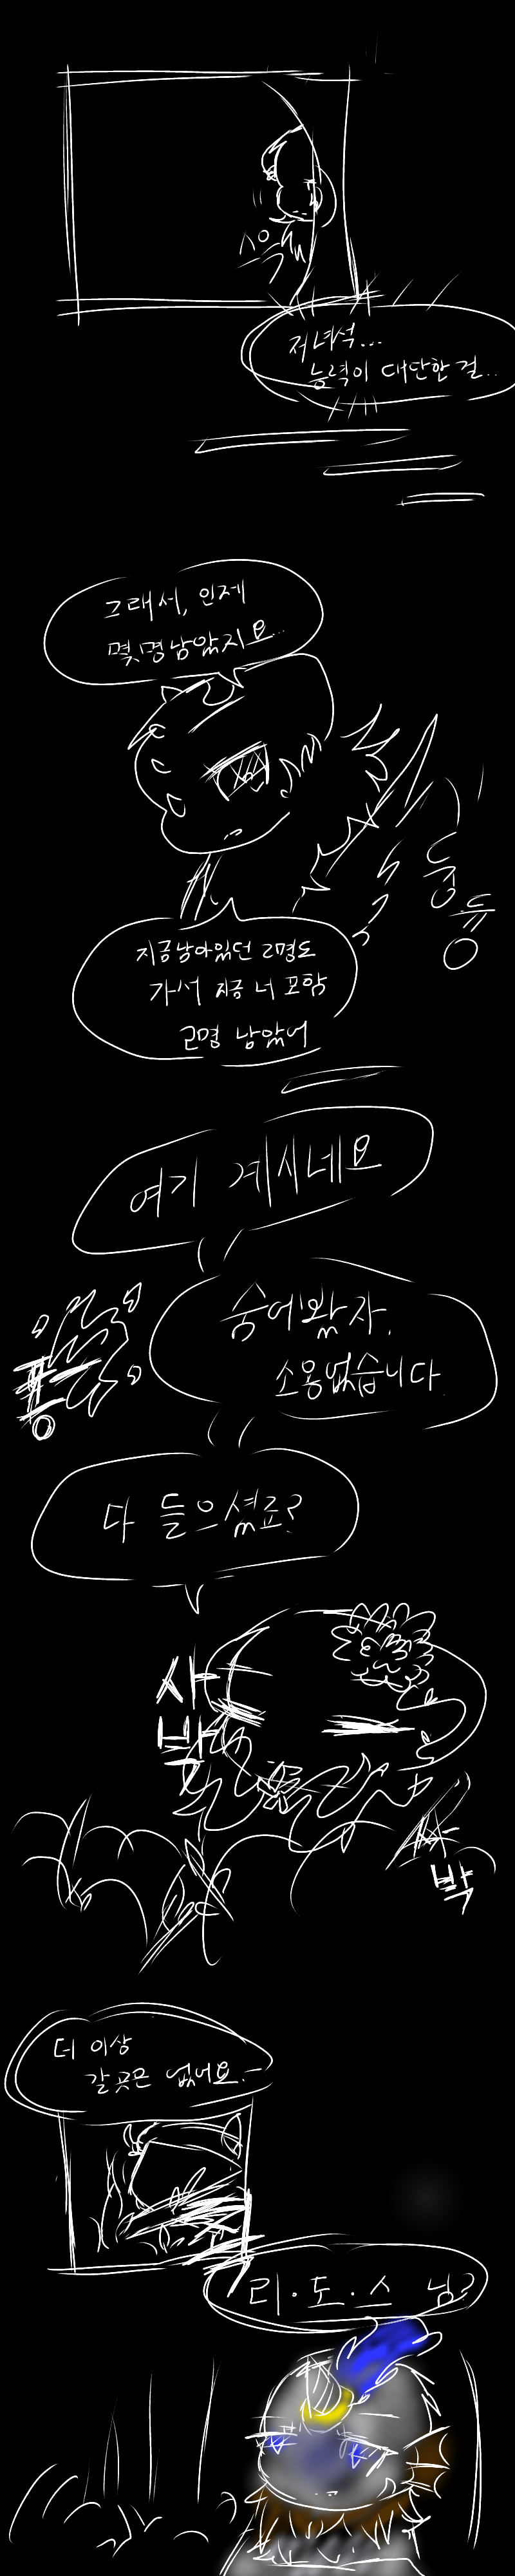 스윽
저녀석...
능력이 대단한 걸..
그래서, 인제
몇명남았지요...
둥
듀
지금남아있던 2명도
가서 지금 너 포함
2명 남았어
여기 계시네요
숨어봤자.
소용없습니다.
다 들으셨죠?
사
박
사
박
더 이상
갈곳은 없어요.-
리·도·스 님?